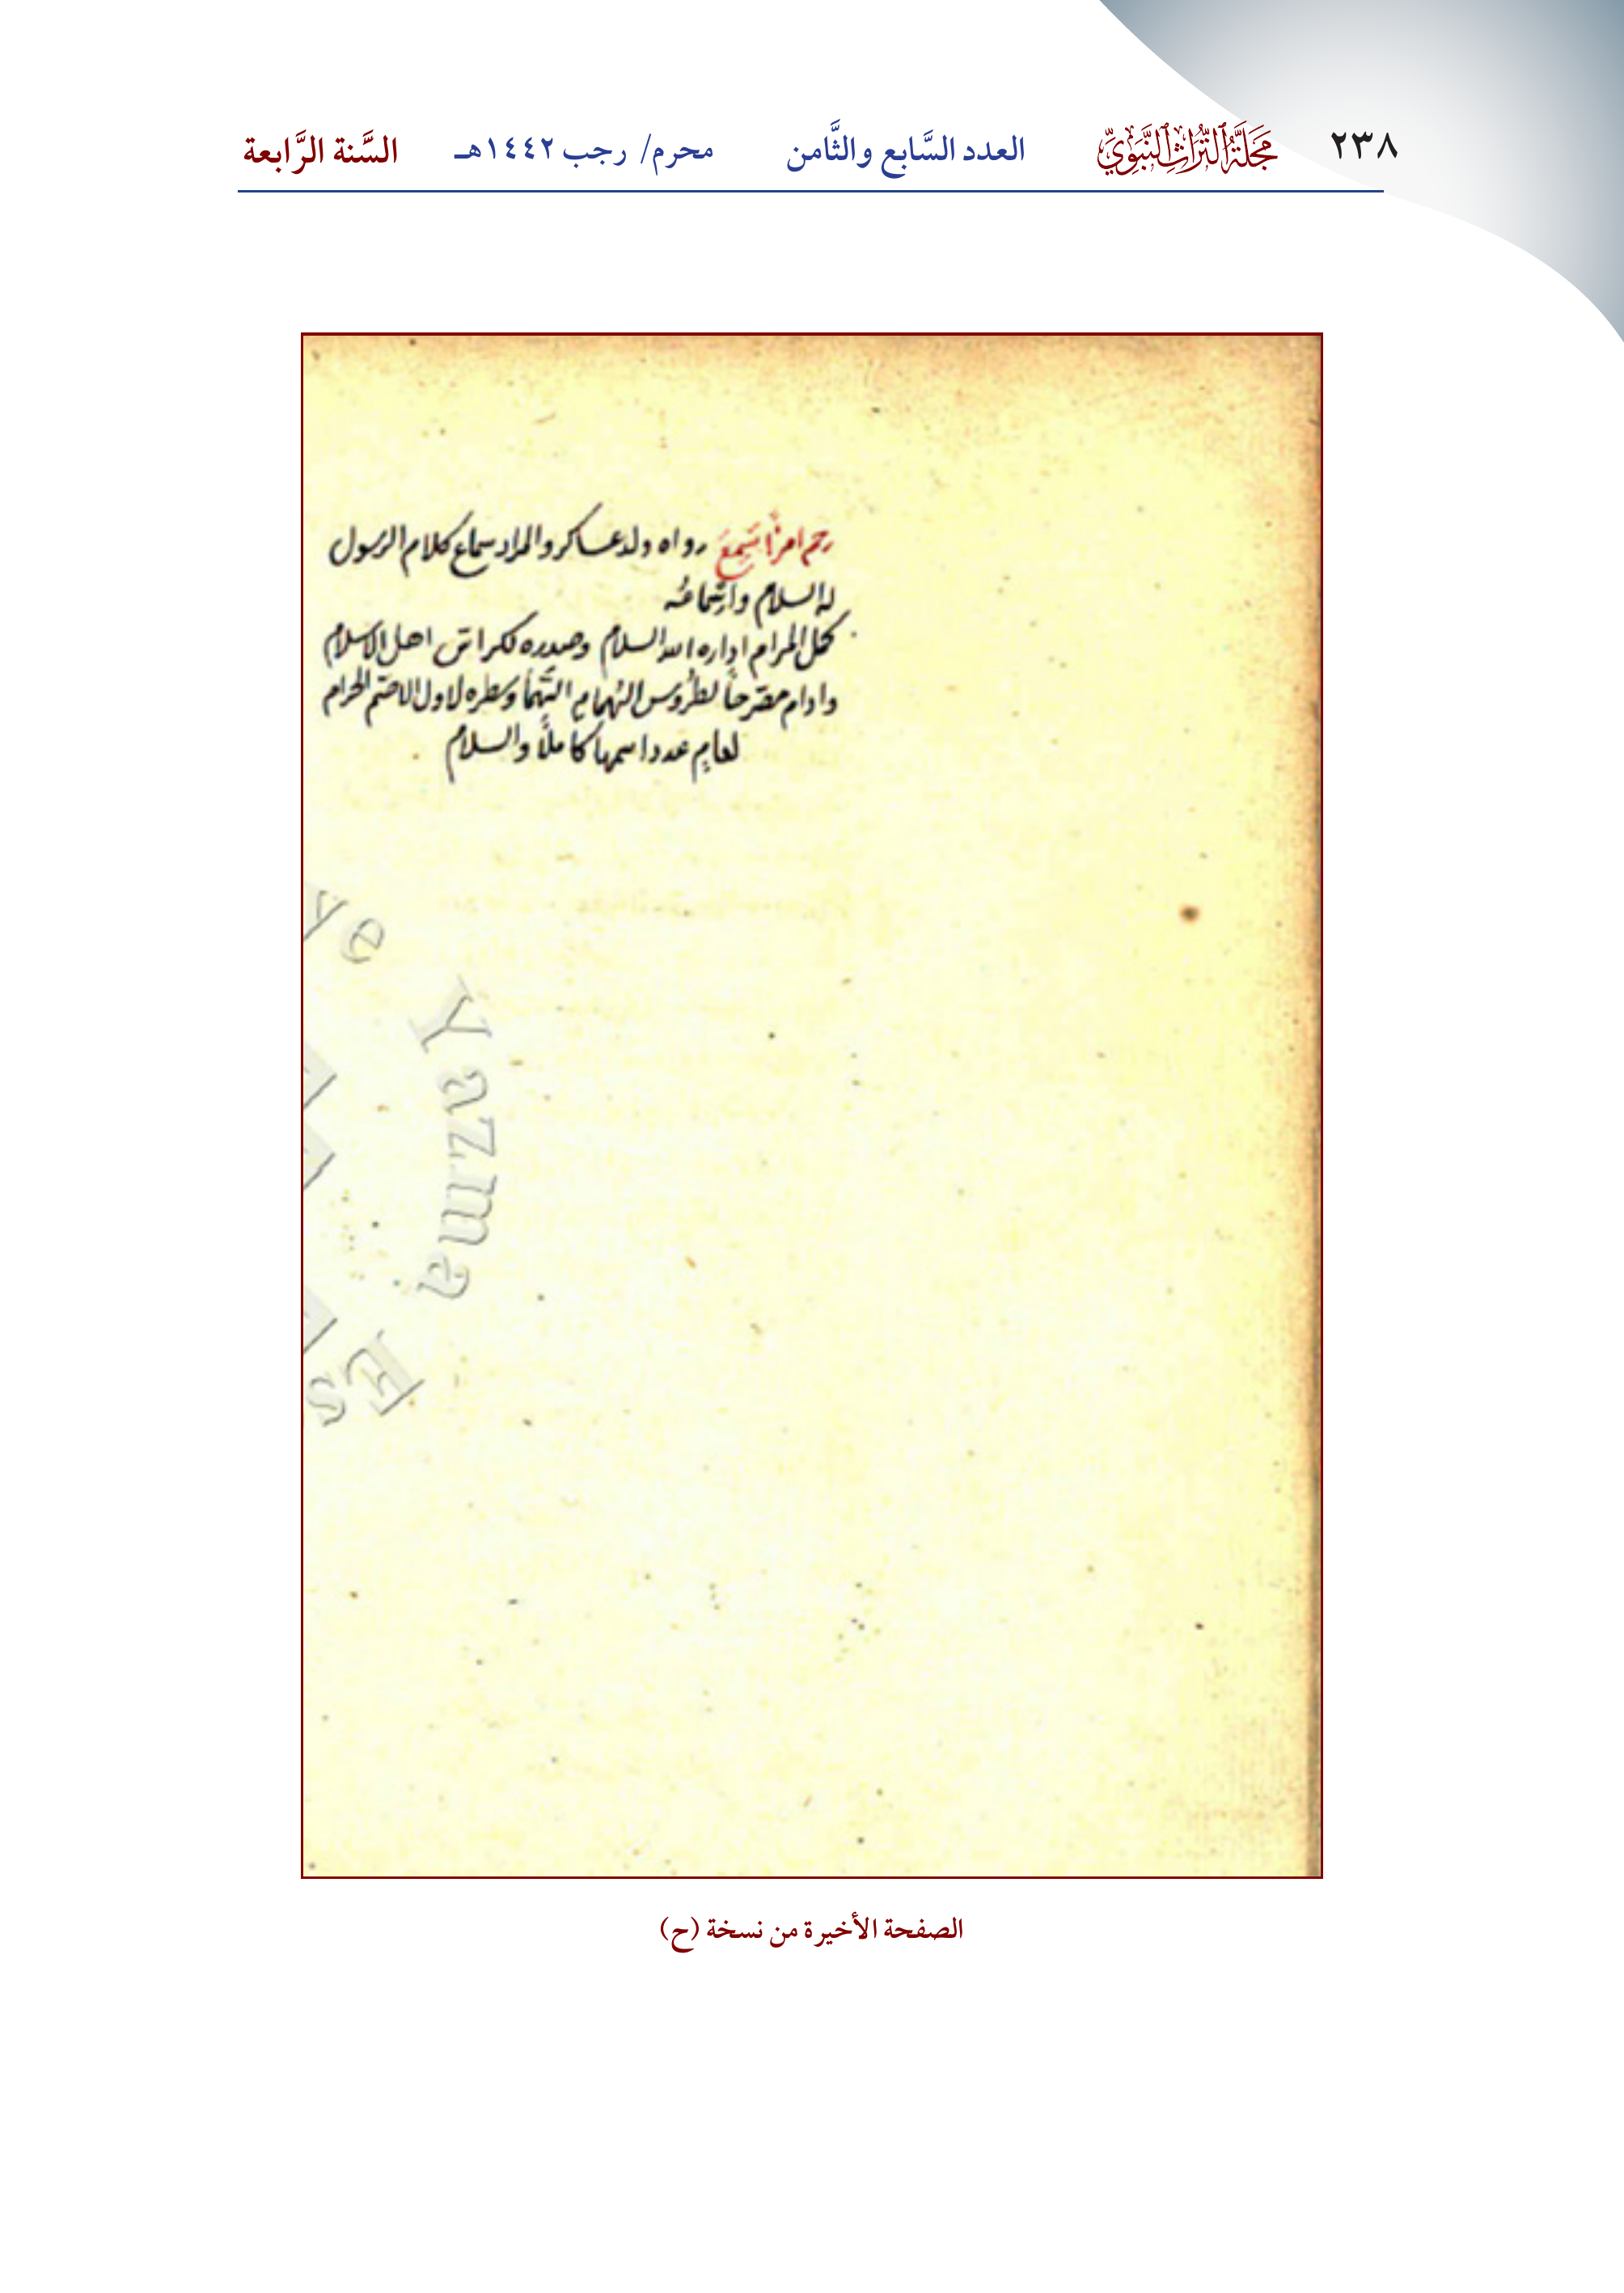 ٢٣٨ مجلة التراث النبوي العدد السَّابع والثَّامن محرم/ رجب ١٤٤٢هـ السَّنة الرَّابعة
رحم امرأ سَمِعَ رواه ولد عساكر والمراد سماع كلام الرسول
له السلام واسماعه
كمل المرام اداره الله السلام وصدره لكراس اهل الاسلام
وادام مقترحاً لطروس الهمام وسطره لاول الاصم الحرام
لعام عدد اسمها كاملاً والسلام
ye Yazma Es
الصفحة الأخيرة من نسخة (ح)